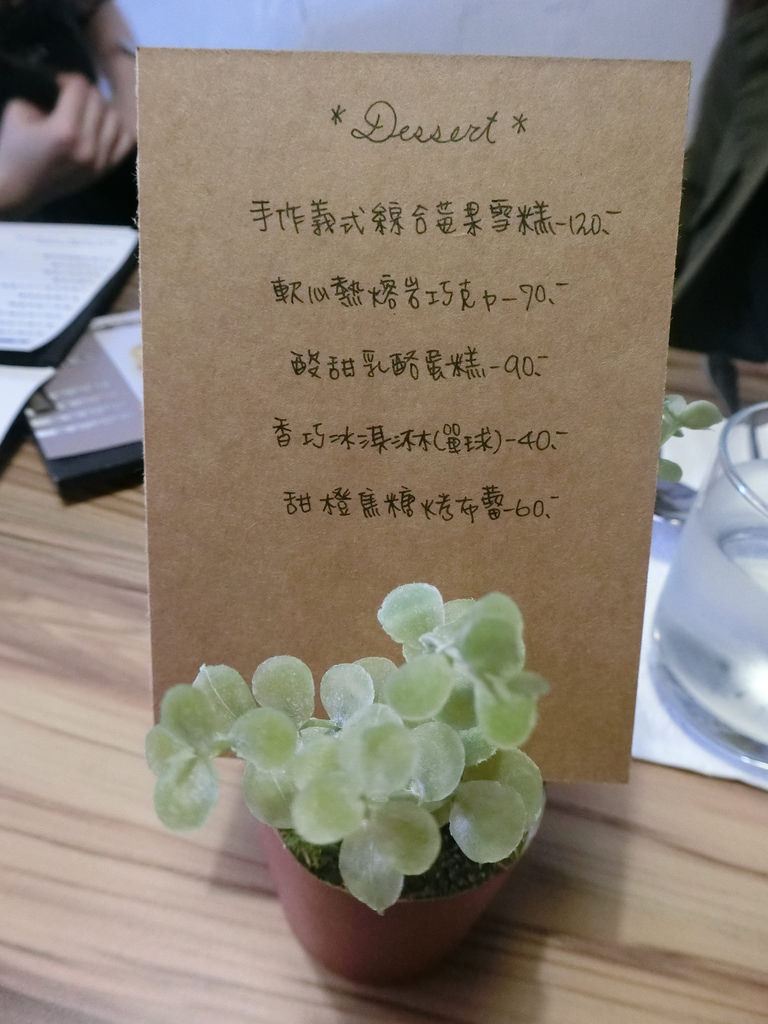 *Dessert*
手作義式綜合莓果雪糕-120.-
軟心熱熔岩巧克力-70.-
酸甜乳酪蛋糕-90.-
香巧冰淇淋(單球)-40.-
甜橙焦糖烤布蕾-60.-